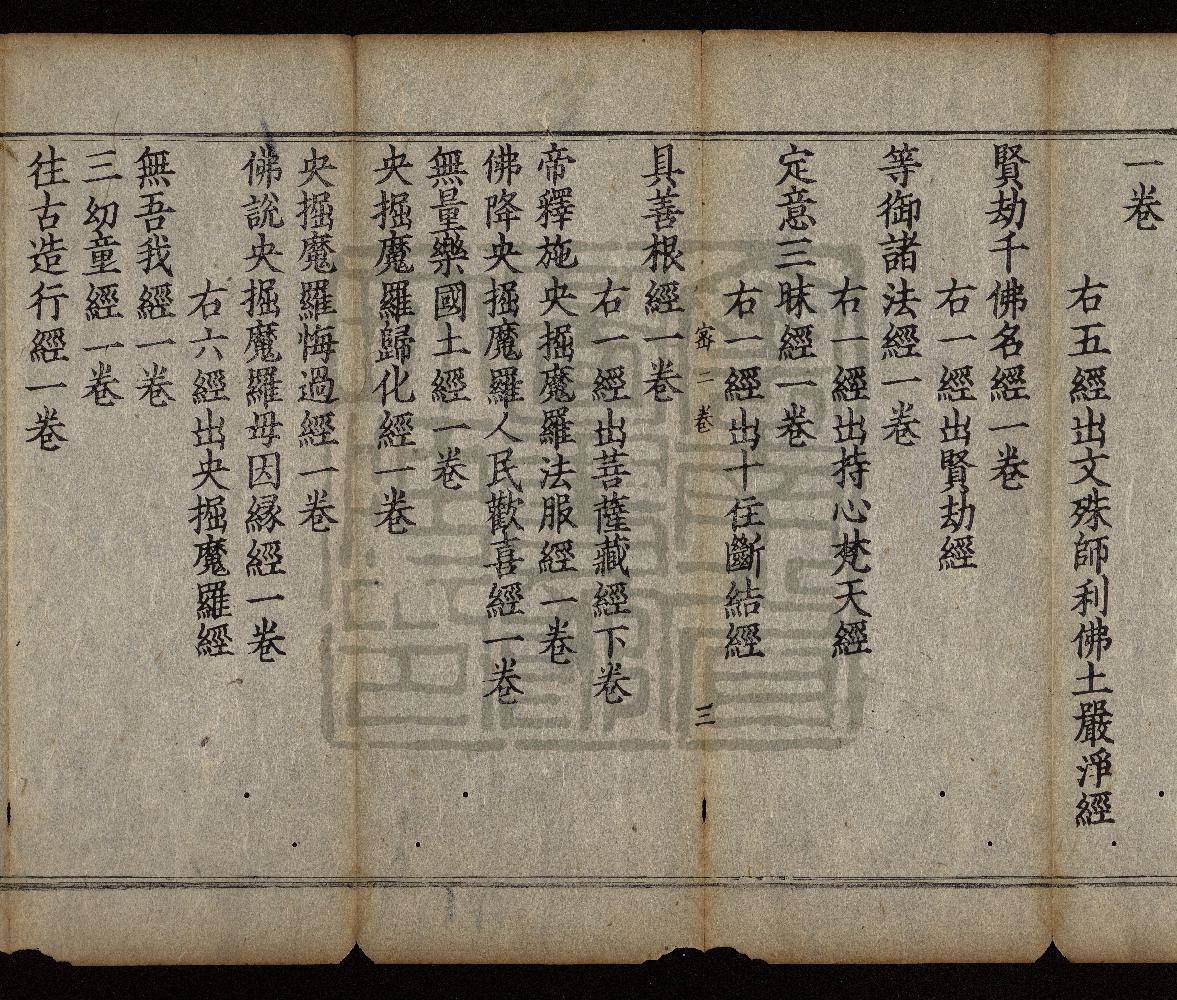 一卷
右五經出文殊師利佛土嚴淨經
賢劫千佛名經一卷
右一經出賢劫經
等御諸法經一卷
右一經出持心梵天經
定意三昧經一卷
右一經出十住斷結經
宻二卷 三
具善根經一卷
右一經出菩薩藏經下卷
帝釋施央掘魔羅法服經一卷
佛降央掘魔羅人民歡喜經一卷
無量樂國土經一卷
央掘魔羅歸化經一卷
央掘魔羅悔過經一卷
佛說央掘魔羅母因縁經一卷
右六經出央掘魔羅經
無吾我經一卷
三幼童經一卷
往古造行經一卷